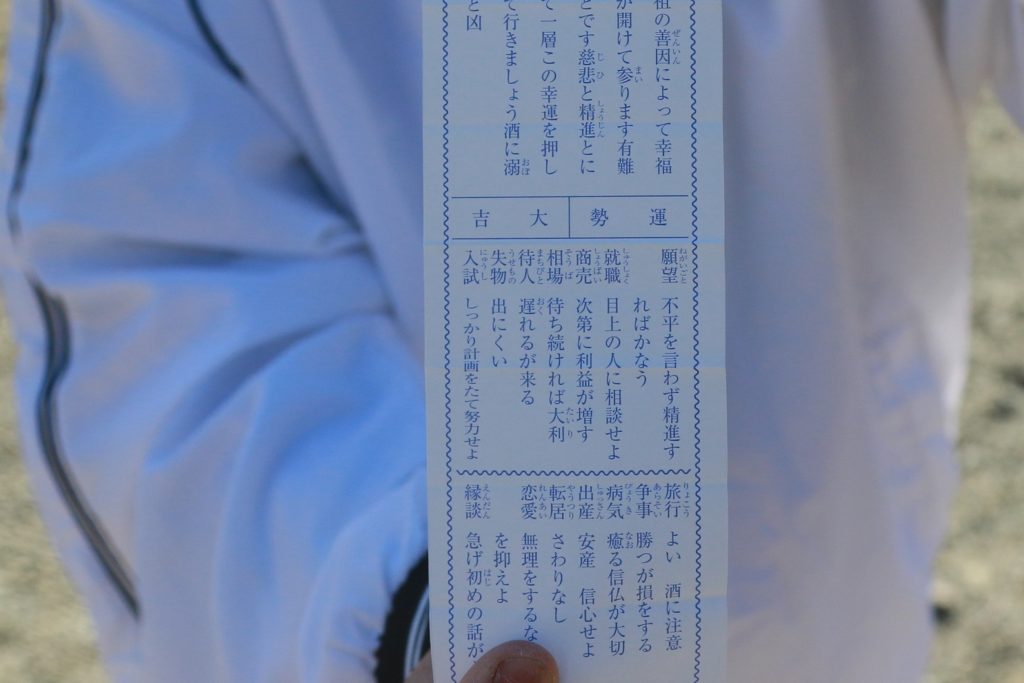 祖の善因によって幸福
が開けて参ります有難
とです慈悲と精進とに
て一層この幸運を押し
て行きましょう酒に溺
と凶
運勢
大吉
願望 不平を言わず精進す
ればかなう
就職 目上の人に相談せよ
商売 次第に利益が増す
相場 待ち続ければ大利
待人 遅れるが来る
失物 出にくい
入試 しっかり計画をたて努力せよ
旅行 よい 酒に注意
争事 勝つが損をする
病気 癒る信仏が大切
出産 安産 信心せよ
転居 さわりなし
恋愛 無理をするな
を抑えよ
縁談 急げ初めの話が